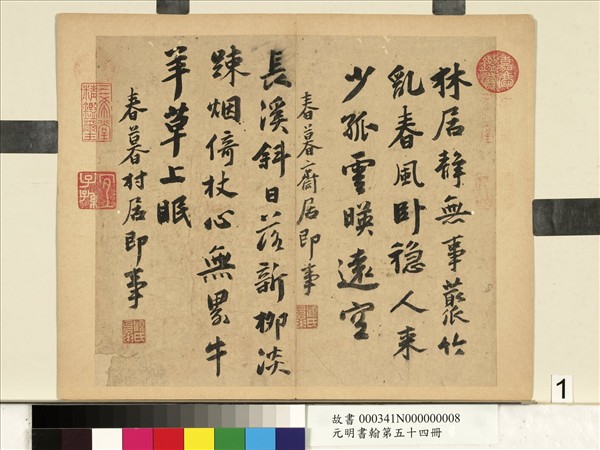 林居靜無事叢竹
亂春風卧穩人來
少孤雲暎遠空
春暮齋居即事
長溪斜日落新柳淡
踈烟倚杖心無累牛
羊草上眠
春暮村居即事
嘉慶鑑賞
三希堂精鑑璽
宜子孫
1
故書 000341N000000008
元明書翰第五十四冊